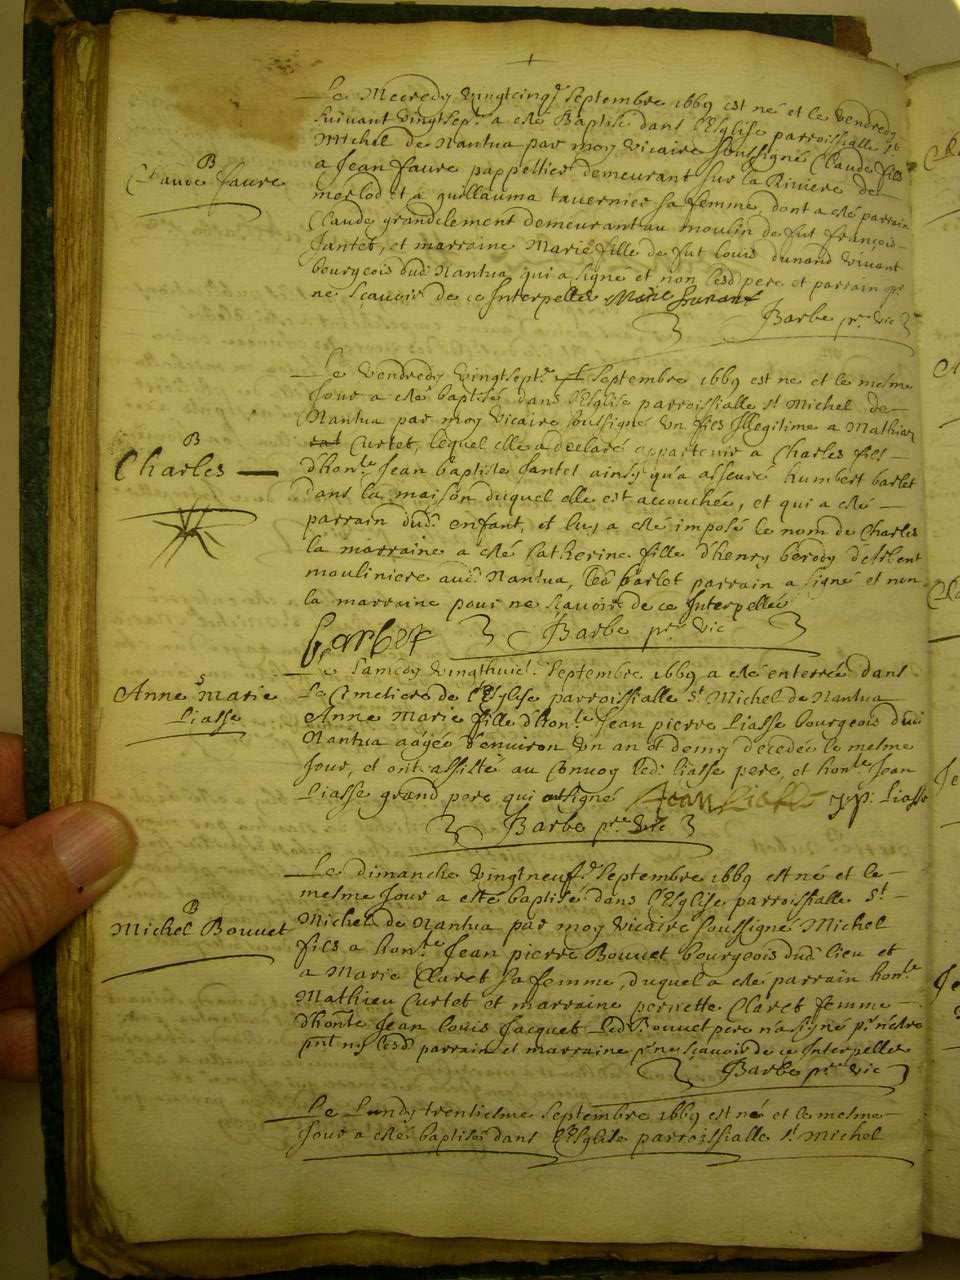 Le Mecredy vingtcinq.e Septembre 1669 est né et le vendredy
suivant vingtsept.e a esté Baptisé dans l'Esglise parroissialle st
Michel de Nantua par moy vicaire soussigné Claude fils
B
Claude faure
a Jean faure pappettier demeurant sur la Riviere de
merlod et a guillauma tavernier sa femme dont a esté parrain
Claude grandclement demeurant au moulin de fut françois
Jantet, et marraine Marie fille de fut Louis dunand vivant
bourgeois dud. Nantua qui a signé et non lesd pere et parrain pr
ne sçavoir de ce Interpellés Marie Dunant
Barbe pr. vic
Le vendredy vingtsept.e Septembre 1669 est né et le mesme
Jour a esté baptisé dans l'Esglise parroissialle st Michel de
Nantua par moy vicaire soussigné un fils Illegitime a Mathiaz
Curtet, lequel elle a declaré appartenir a Charles fils
B
Charles
d'hon.le Jean baptiste Jantet ainsy qu'a asseuré humbert barlet
dans la maison duquel elle est accouchée, et qui a esté
parrain dud. enfant, et luy a esté imposé le nom de Charles
la marraine a esté Catherine fille d'henry berody
mouliniere aud. Nantua, led barlet parrain a signé et non
la marraine pour ne scavoir de ce Interpellée
Barbe pr. vic
Le Samedy vingthuict. Septembre 1669 a esté enterrée dans
S
Anne Marie
Liasse
Le Cimetiere de l'Esglise parroissialle St Michel de Nantua
Anne Marie fille d'hon.le Jean pierre Liasse bourgeois dud.
Nantua aagée d'environ un an et demy decedée le mesme
Jour, et ont assisté au Convoy led. Liasse pere, et hon.le Jean
Liasse grand pere qui ont signé Jean Liasse J.p. Liasse
Barbe pr.e vic
Le dimanche vingtneuf.e Septembre 1669 est né et le
mesme Jour a esté baptisé dans l'Esglise parroissialle St
B
Michel Bouvet
Michel de Nantua par moy vicaire soussigné Michel
fils a hon.le Jean pierre Bouvet bourgeois dud. lieu et
a Marie Claret sa femme, duquel a esté parrain hon.le
Mathieu Curtet et marraine pernette Claret femme
d'hon.le Jean Louis Jacquet led Bouvet pere n'a signé pr n'estre
pnt ny lesd parrain et marraine pr ne sçavoir de ce Interpellés
Barbe pr. vic
Le Lundy trentiesme Septembre 1669 est né et le mesme
Jour a esté baptisé dans l'Esglise parroissialle st Michel